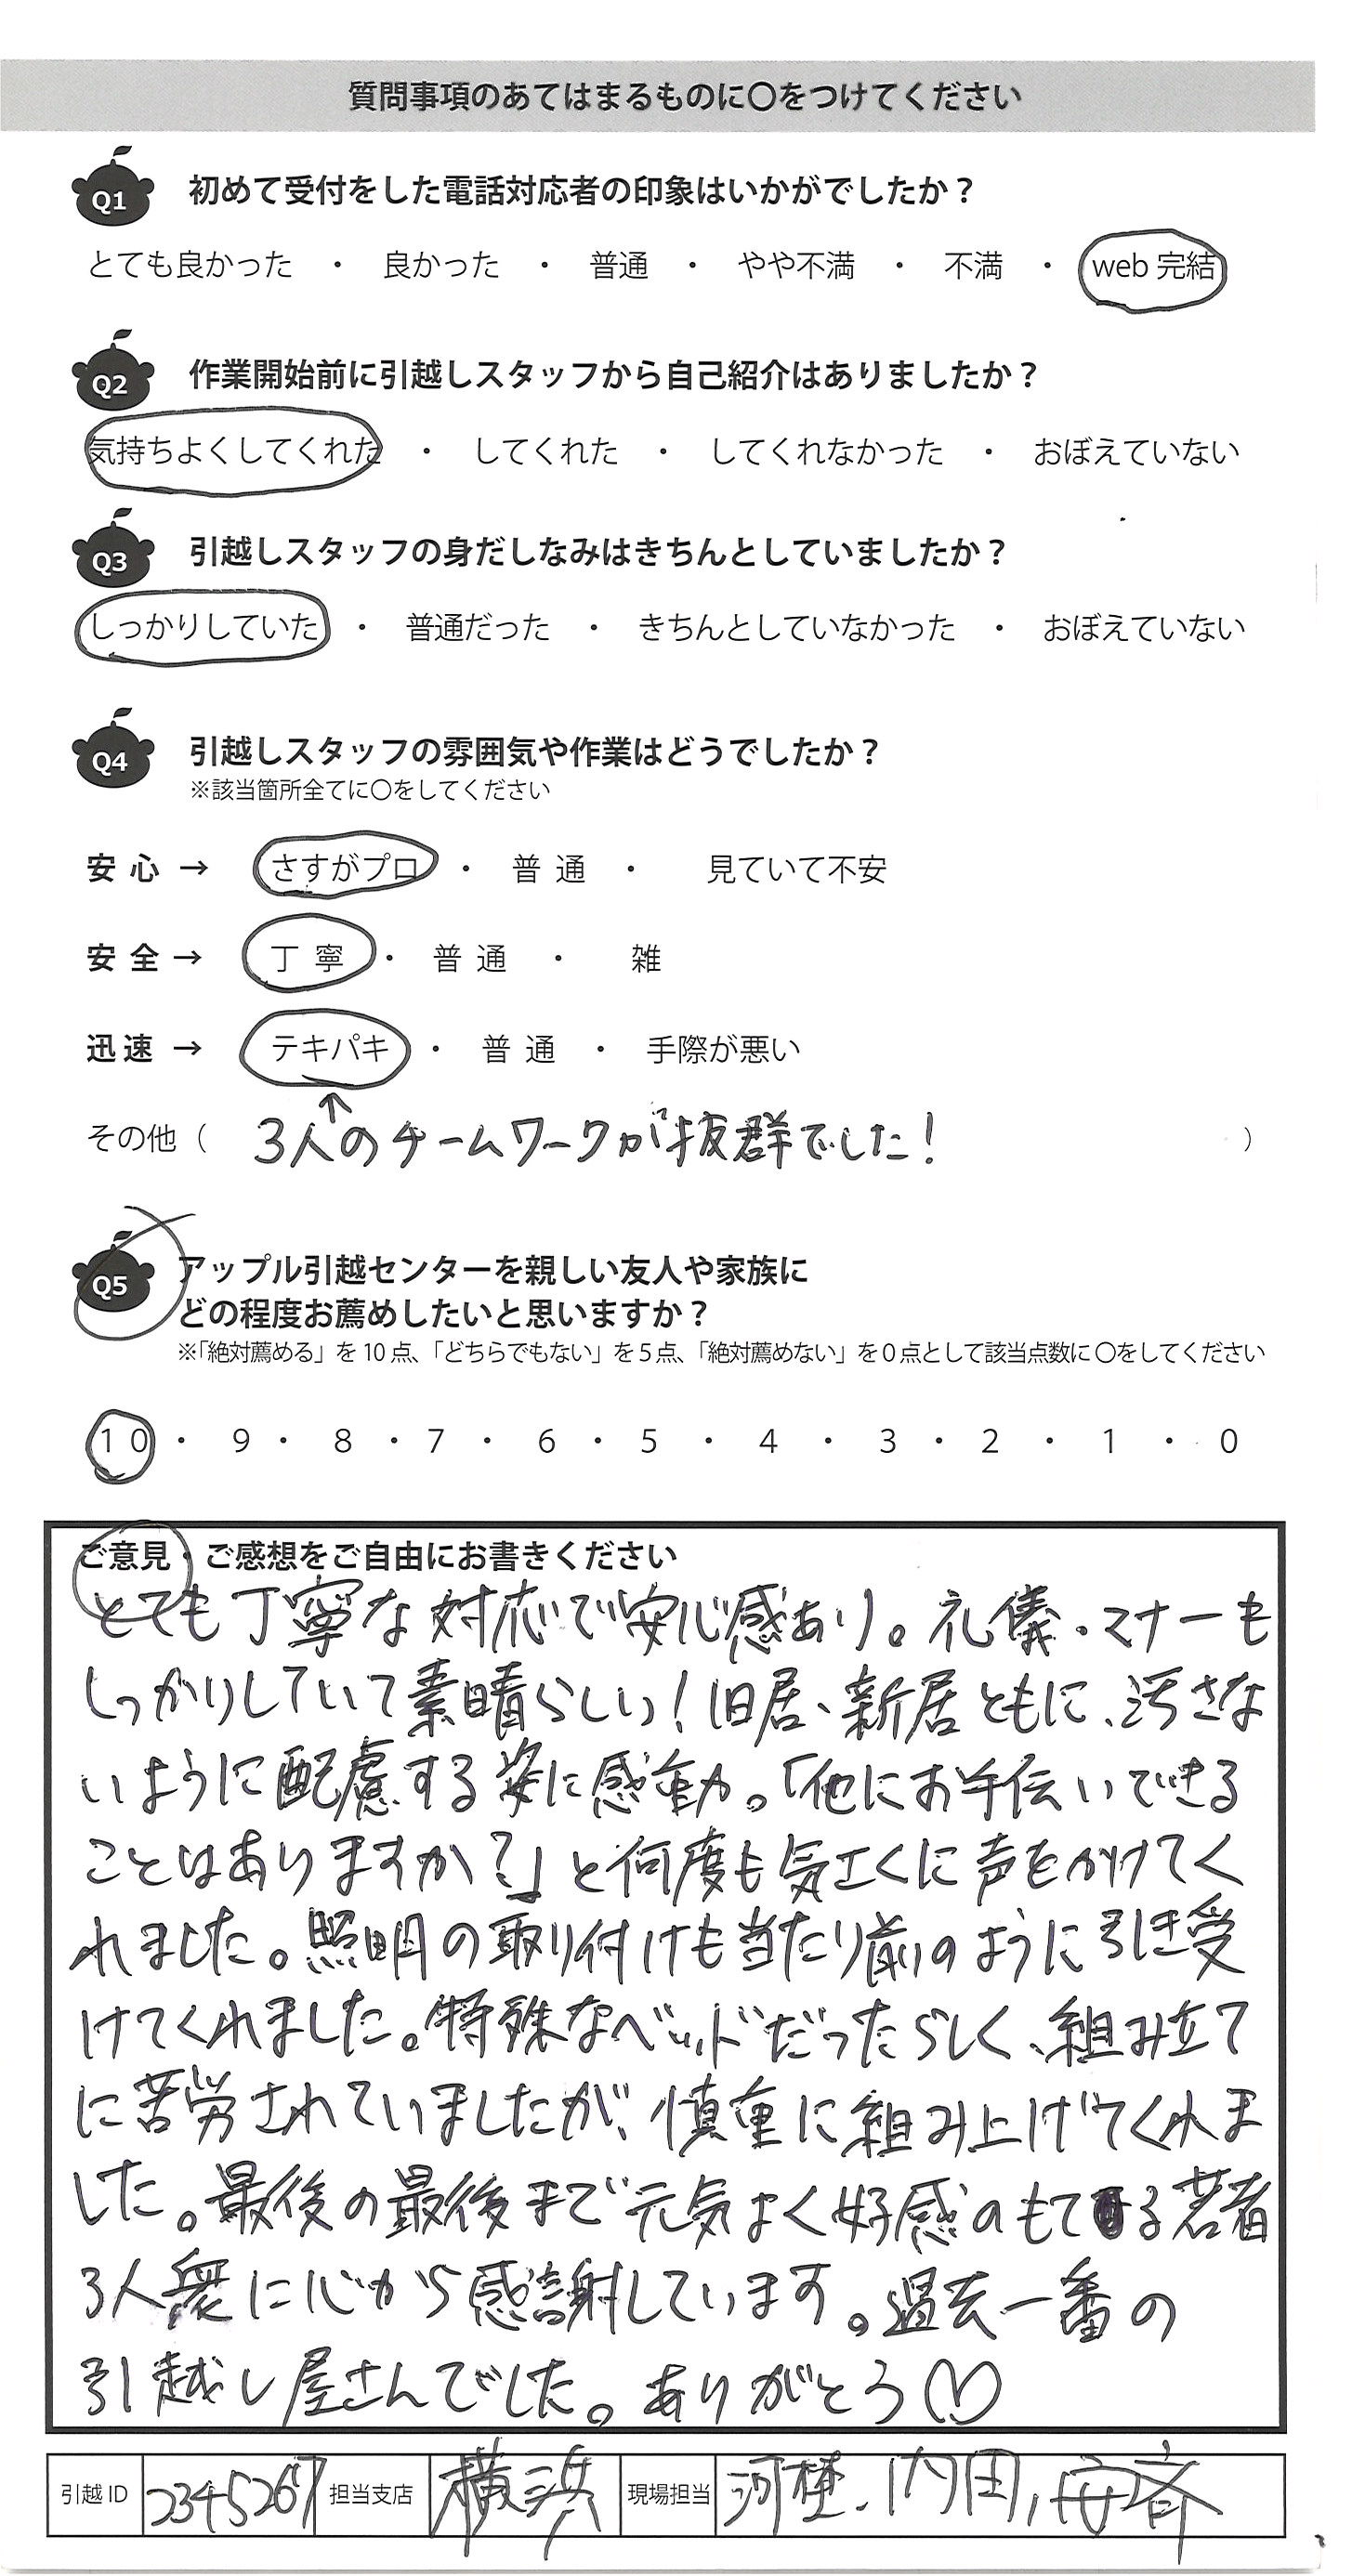 質問事項のあてはまるものに〇をつけてください
Q1 初めて受付をした電話対応者の印象はいかがでしたか？
とても良かった ・ 良かった ・ 普通 ・ やや不満 ・ 不満 ・ web 完結
Q2 作業開始前に引越しスタッフから自己紹介はありましたか？
気持ちよくしてくれた ・ してくれた ・ してくれなかった ・ おぼえていない
Q3 引越しスタッフの身だしなみはきちんとしていましたか？
しっかりしていた ・ 普通だった ・ きちんとしていなかった ・ おぼえていない
Q4 引越しスタッフの雰囲気や作業はどうでしたか？
※該当箇所全てに〇をしてください
安 心 → さすがプロ ・ 普 通 ・ 見ていて不安
安 全 → 丁 寧 ・ 普 通 ・ 雑
迅 速 → テキパキ ・ 普 通 ・ 手際が悪い
↑
その他（ 3人のチームワークが抜群でした！ ）
Q5 アップル引越センターを親しい友人や家族に
どの程度お薦めしたいと思いますか？
※「絶対薦める」を 10 点、「どちらでもない」を 5 点、「絶対薦めない」を 0 点として該当点数に 〇をしてください
10 ・ 9 ・ 8 ・ 7 ・ 6 ・ 5 ・ 4 ・ 3 ・ 2 ・ 1 ・ 0
ご意見・ご感想をご自由にお書きください
とても丁寧な対応で安心感あり。礼儀・マナーも
しっかりしていて素晴らしい！旧居、新居ともに、汚さな
いように配慮する姿に感動。「他にお手伝いできる
ことはありますか？」と何度も気さくに声をかけてく
れました。照明の取り付けも当たり前のように引き受
けてくれました。特殊なベッドだったらしく、組み立て
に苦労されていましたが、慎重に組み上げてくれま
した。最後の最後まで元気よく好感のもてる若者
3人衆に心から感謝しています。過去一番の
引越し屋さんでした。ありがとう♡
引越 ID 2345267 担当支店 横浜 現場担当 内田、安斉